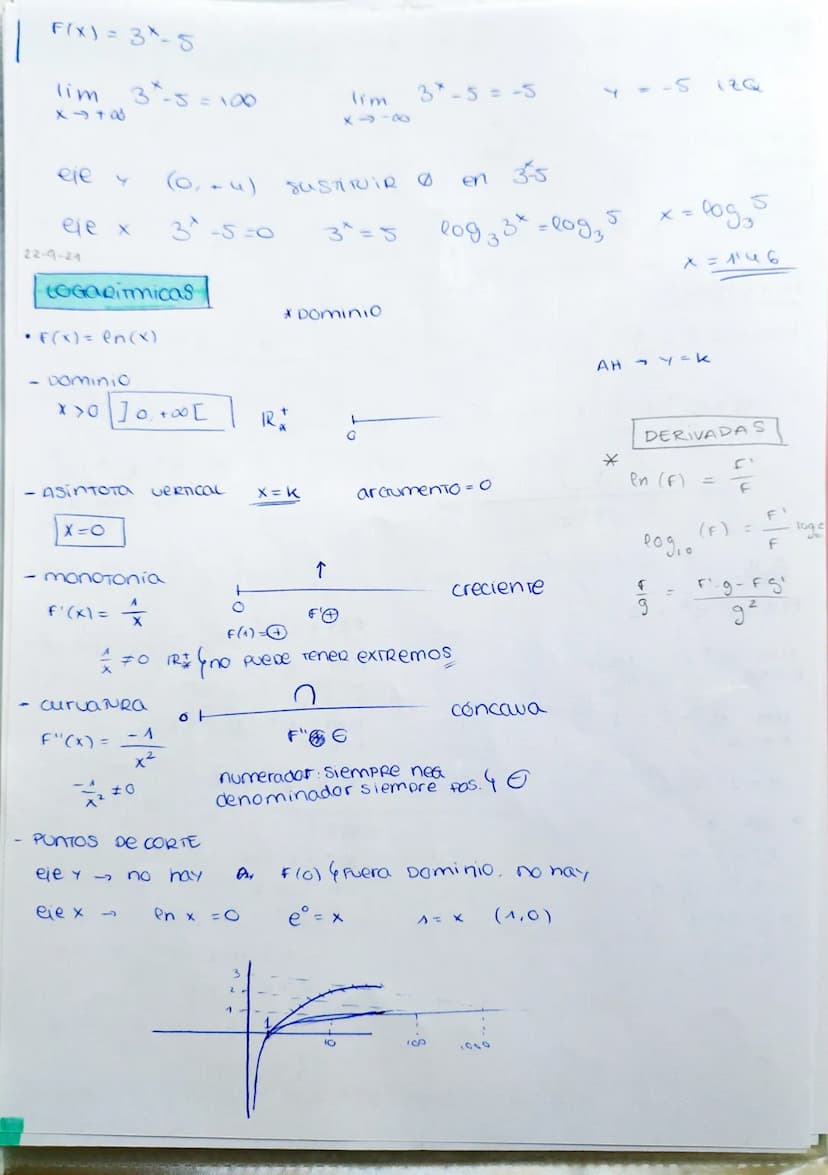 F(x) = 3^x - 5
lim x→+∞ 3^x - 5 = +∞ lim x→-∞ 3^x - 5 = -5 y = -5 IZQ
eje y (0, -4) SUSTITUIR 0 en 3^x-5
eje x 3^x - 5 = 0 3^x = 5 log₃ 3^x = log₃ 5 x = log₃ 5
x = 1'46
22-9-21
LOGARÍTMICAS
* DOMINIO
• F(x) = ln(x)
AH → y = k
- DOMINIO
x > 0 ]0, +∞[ ℝ⁺ 0
DERIVADAS
*
ln (F) = F'/F
- ASÍNTOTA VERTICAL x = k argumento = 0
x = 0
log₁₀ (F) = F'/F log e
- MONOTONÍA ↑ creciente
F/g = (F'·g - F g')/g²
F'(x) = 1/x 0 F'⊕
F(1) = ⊕
1/x ≠ 0 ℝ⁺ ↳ no PUEDE TENER EXTREMOS
- CURVATURA 0 ∩ cóncava
F''(x) = -1/x² F'' ⊖
-1/x² ≠ 0 numerador: SIEMPRE neg
denominador siempre pos. ↳ ⊖
- PUNTOS DE CORTE
eje y → no hay F(0) ↳ FUERA DOMINIO. no hay
eje x → ln x = 0 e⁰ = x 1 = x (1,0)
3
2
1
1 10 100 1000